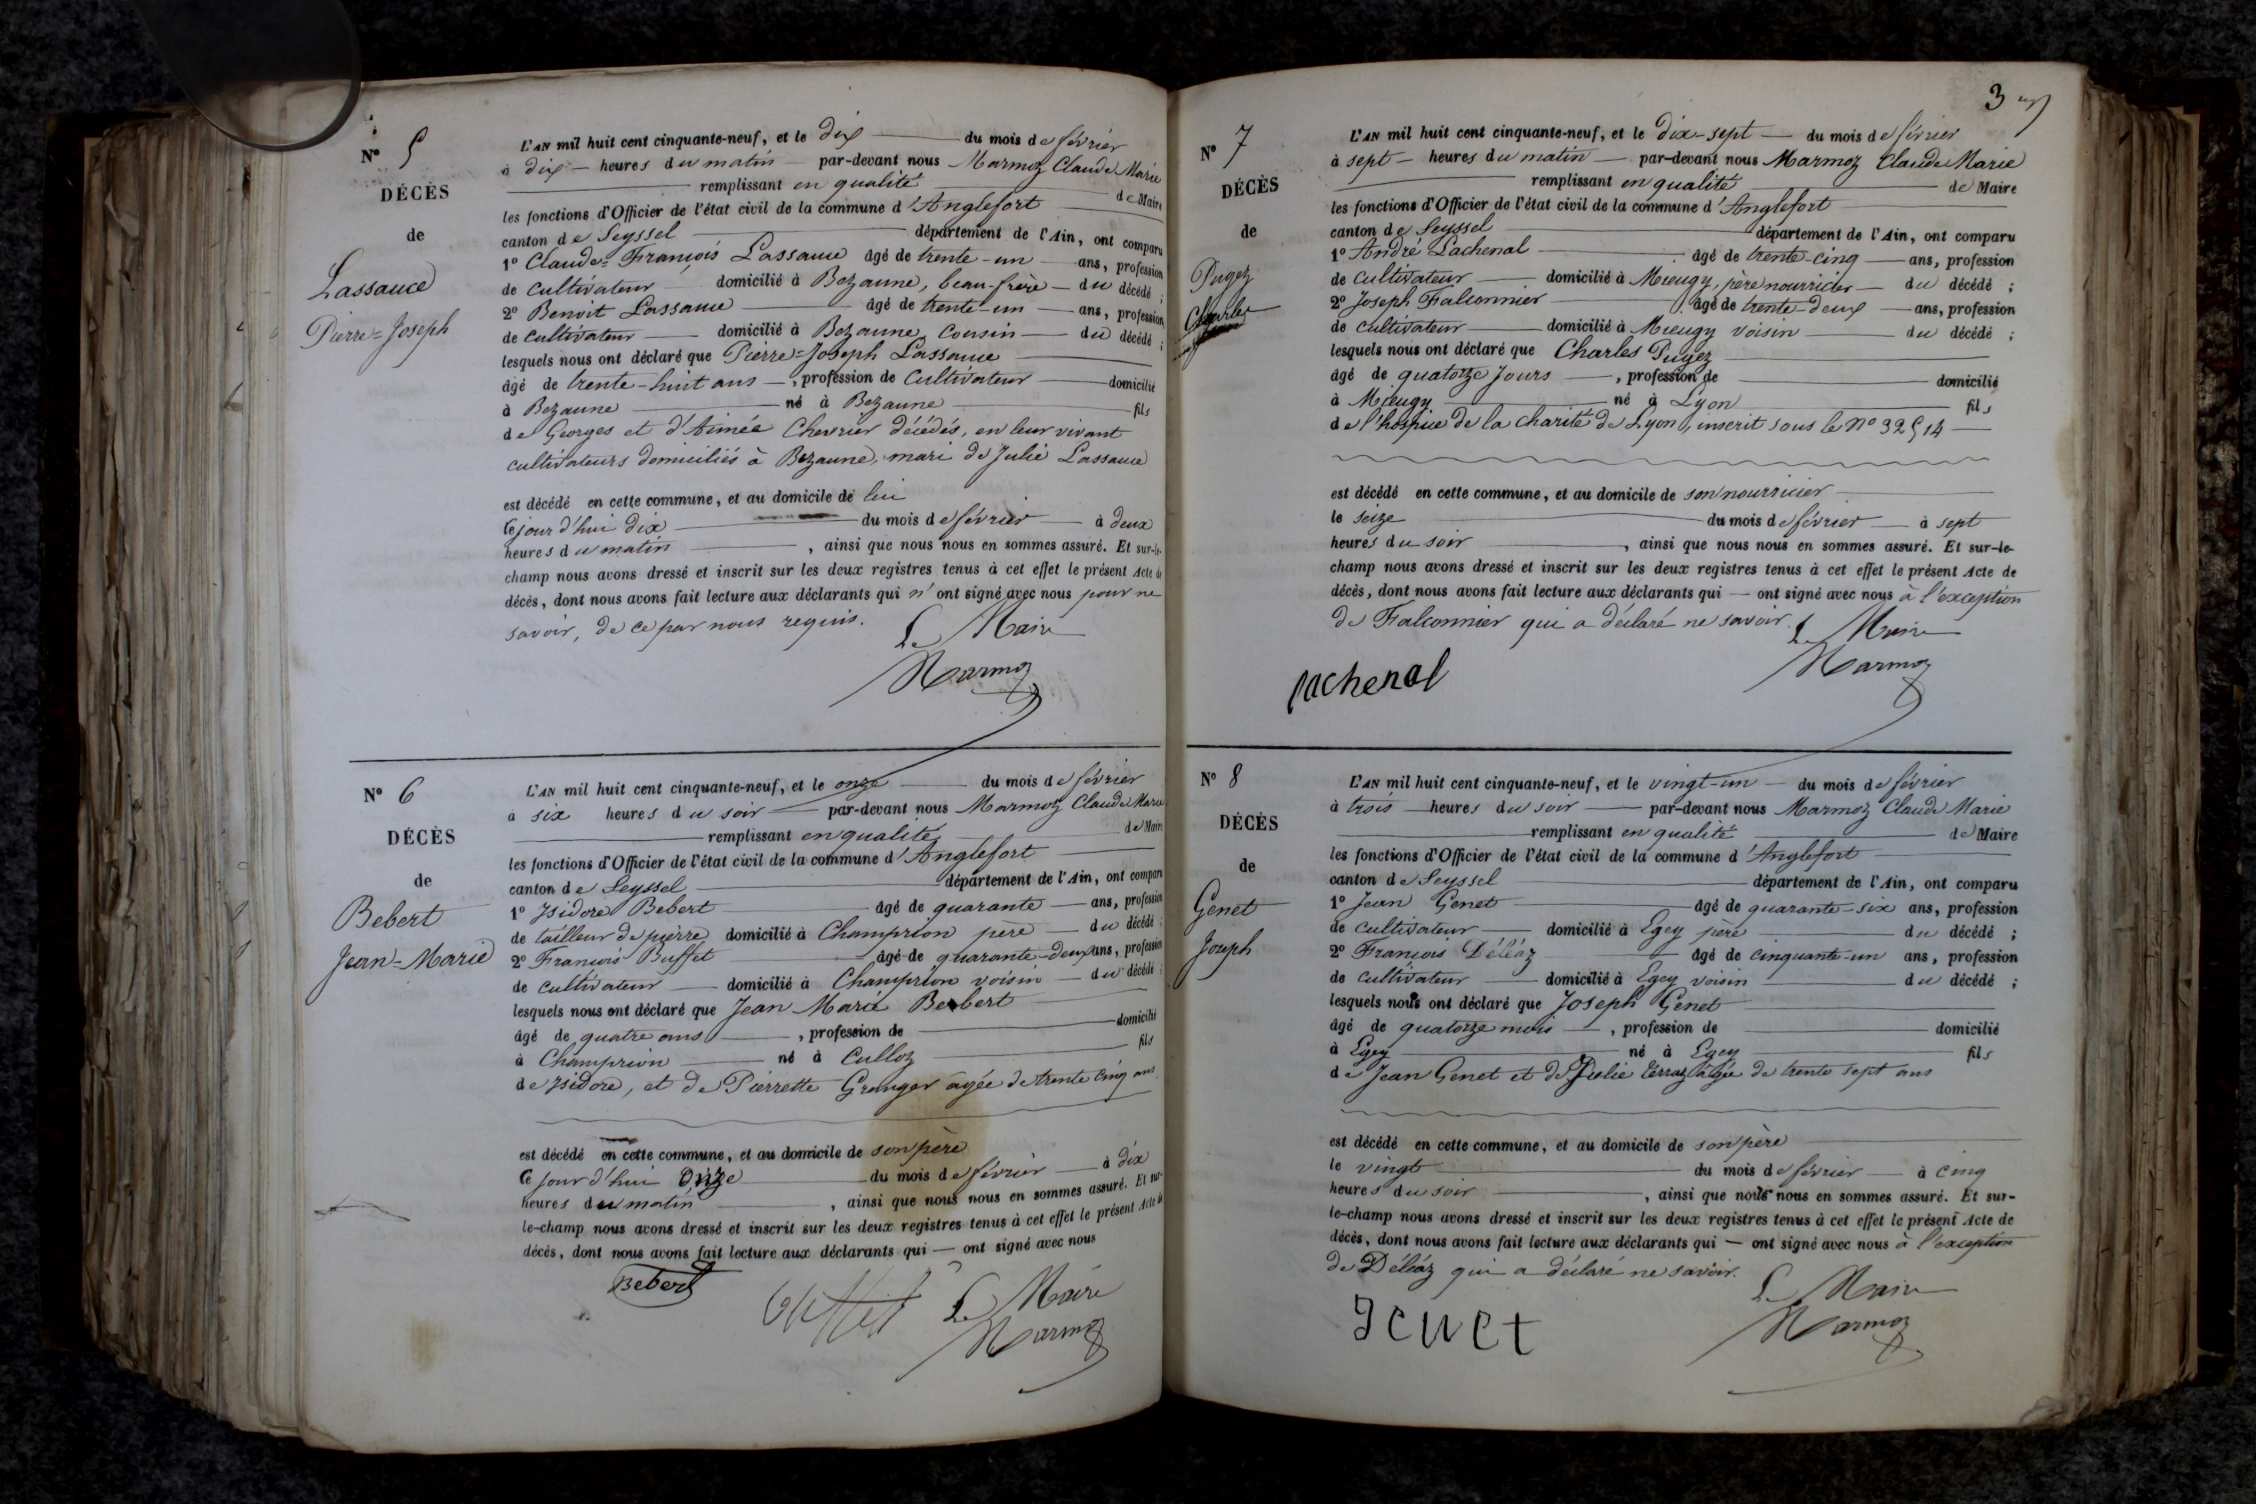 N° 5
DÉCÈS
de
Lassauce
Pierre=Joseph
L'AN mil huit cent cinquante-neuf, et le dix du mois de février
à dix heures du matin par-devant nous Marmoz Claude Marie
remplissant en qualité de Maire
les fonctions d'Officier de l'état civil de la commune d'Anglefort
canton de Seyssel département de l'Ain, ont comparu
1° Claude=François Lassauce âgé de trente-un ans, profession
de cultivateur domicilié à Bezaune, beau-frère du décédé ;
2° Benoit Lassauce âgé de trente-un ans, profession
de cultivateur domicilié à Bezaune, cousin du décédé ;
lesquels nous ont déclaré que Pierre=Joseph Lassauce
âgé de trente-huit ans, profession de cultivateur domicilié
à Bezaune né à Bezaune fils
de Georges et d'Aimée Chevrier décédés, en leur vivant
cultivateurs domiciliés à Bezaune, mari de Julie Lassauce
est décédé en cette commune, et au domicile de lui
Ce jour d'hui dix du mois de février à deux
heures du matin, ainsi que nous nous en sommes assuré. Et sur-le-
champ nous avons dressé et inscrit sur les deux registres tenus à cet effet le présent Acte de
décès, dont nous avons fait lecture aux déclarants qui n'ont signé avec nous pour ne
savoir, de ce par nous requis.
Le Maire
Marmoz
N° 6
DÉCÈS
de
Bebert
Jean-Marie
L'AN mil huit cent cinquante-neuf, et le onze du mois de février
à six heures du soir par-devant nous Marmoz Claude Marie
remplissant en qualité de Maire
les fonctions d'Officier de l'état civil de la commune d'Anglefort
canton de Seyssel département de l'Ain, ont comparu
1° Isidore Bebert âgé de quarante ans, profession
de tailleur de pierre domicilié à Champrion père du décédé ;
2° François Buffet âgé de quarante-deux ans, profession
de cultivateur domicilié à Champrion voisin du décédé ;
lesquels nous ont déclaré que Jean Marie Bebert
âgé de quatre ans, profession de domicilié
à Champrion né à Culloz fils
de Isidore, et de Pierrette Granger âgée de trente cinq ans
est décédé en cette commune, et au domicile de son père
Ce jour d'hui onze du mois de février à dix
heures du matin, ainsi que nous nous en sommes assuré. Et sur-
le-champ nous avons dressé et inscrit sur les deux registres tenus à cet effet le présent Acte de
décès, dont nous avons fait lecture aux déclarants qui — ont signé avec nous
Bebert
Le Maire
Marmoz
3
N° 7
DÉCÈS
de
Pugez
Charles
L'AN mil huit cent cinquante-neuf, et le dix-sept du mois de février
à sept heures du matin par-devant nous Marmoz Claude Marie
remplissant en qualité de Maire
les fonctions d'Officier de l'état civil de la commune d'Anglefort
canton de Seyssel département de l'Ain, ont comparu
1° André Lachenal âgé de trente-cinq ans, profession
de cultivateur domicilié à Mieugy, père nourricier du décédé ;
2° Joseph Falconnier âgé de trente-deux ans, profession
de cultivateur domicilié à Mieugy voisin du décédé ;
lesquels nous ont déclaré que Charles Pugez
âgé de quatorze jours, profession de domicilié
à Mieugy né à Lyon fils
de l'hospice de la charité de Lyon, inscrit sous le N° 32514
est décédé en cette commune, et au domicile de son nourricier
le seize du mois de février à sept
heures du soir, ainsi que nous nous en sommes assuré. Et sur-le-
champ nous avons dressé et inscrit sur les deux registres tenus à cet effet le présent Acte de
décès, dont nous avons fait lecture aux déclarants qui — ont signé avec nous à l'exception
de Falconnier qui a déclaré ne savoir.
Le Maire
Marmoz
Lachenal
N° 8
DÉCÈS
de
Genet
Joseph
L'AN mil huit cent cinquante-neuf, et le vingt-un du mois de février
à trois heures du soir par-devant nous Marmoz Claude Marie
remplissant en qualité de Maire
les fonctions d'Officier de l'état civil de la commune d'Anglefort
canton de Seyssel département de l'Ain, ont comparu
1° Jean Genet âgé de quarante-six ans, profession
de cultivateur domicilié à Egey père du décédé ;
2° François Déléaz âgé de cinquante-un ans, profession
de cultivateur domicilié à Egey voisin du décédé ;
lesquels nous ont déclaré que Joseph Genet
âgé de quatorze mois, profession de domicilié
à Egey né à Egey fils
de Jean Genet et de Julie âgée de trente sept ans
est décédé en cette commune, et au domicile de son père
le vingt du mois de février à cinq
heures du soir, ainsi que nous nous en sommes assuré. Et sur-
le-champ nous avons dressé et inscrit sur les deux registres tenus à cet effet le présent Acte de
décès, dont nous avons fait lecture aux déclarants qui — ont signé avec nous à l'exception
de Déléaz qui a déclaré ne savoir.
Le Maire
Marmoz
Genet